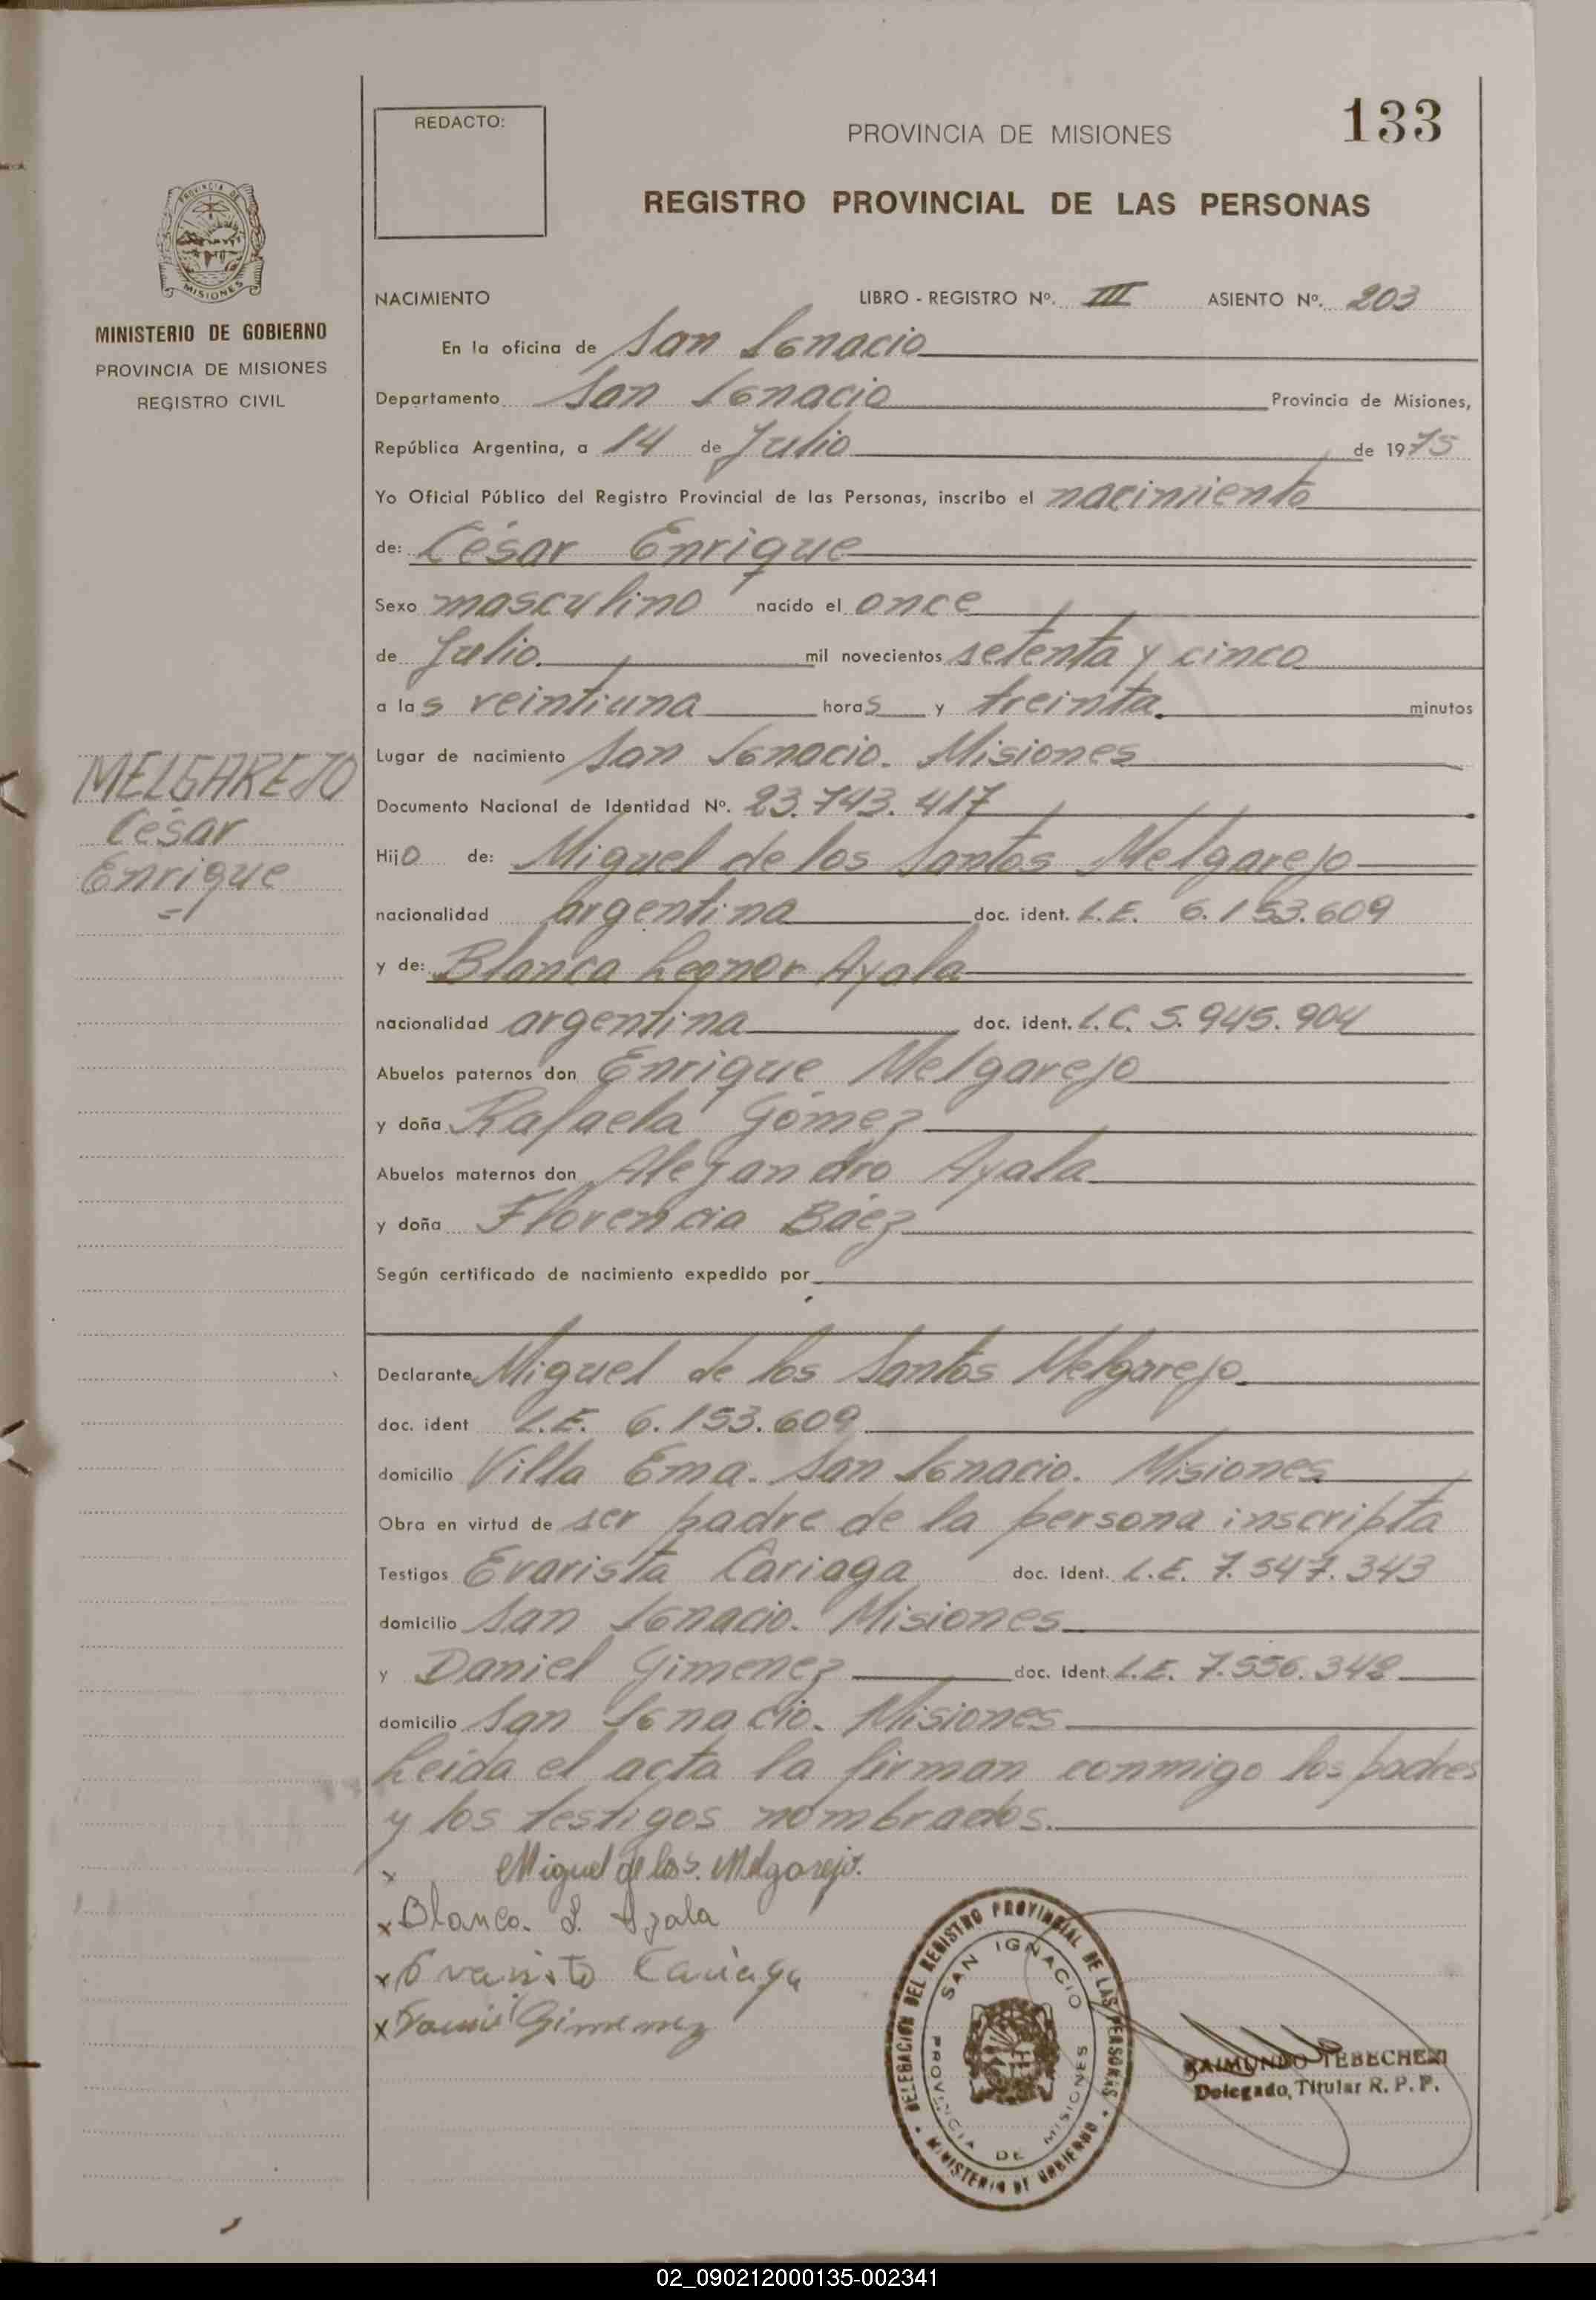 133
REDACTO:
PROVINCIA DE MISIONES
REGISTRO PROVINCIAL DE LAS PERSONAS
PROVINCIA DE
MISIONES
MINISTERIO DE GOBIERNO
PROVINCIA DE MISIONES
REGISTRO CIVIL
NACIMIENTO LIBRO - REGISTRO Nº. III ASIENTO Nº. 203
En la oficina de San Ignacio
Departamento San Ignacio Provincia de Misiones,
República Argentina, a 14 de Julio de 1975
Yo Oficial Público del Registro Provincial de las Personas, inscribo el nacimiento
de: César Enrique
Sexo masculino nacido el once
de Julio mil novecientos setenta y cinco
a las veintiuna horas y treinta. minutos
Lugar de nacimiento San Ignacio. Misiones
Documento Nacional de Identidad Nº. 23.743.417
MELGAREJO
César
Enrique
Hijo de: Miguel de los Santos Melgarejo
nacionalidad argentina doc. ident. L.E. 6.153.609
y de: Blanca Leonor Ayala
nacionalidad argentina doc. ident. L.C. 5.945.904
Abuelos paternos don Enrique Melgarejo
y doña Rafaela Gómez
Abuelos maternos don Alejandro Ayala
y doña Florencia Báez
Según certificado de nacimiento expedido por
Declarante Miguel de los Santos Melgarejo
doc. ident L.E. 6.153.609
domicilio Villa Ema. San Ignacio. Misiones
Obra en virtud de ser padre de la persona inscripta
Testigos Evarista Cariaga doc. Ident. L.E. 7.547.343
domicilio San Ignacio. Misiones
y Daniel Gimenez doc. Ident. L.E. 7.556.348
domicilio San Ignacio. Misiones
Leída el acta la firman conmigo los padres
y los testigos nombrados.
x Miguel de los S. Melgarejo.
x Blanca. L. Ayala
x Evaristo Cariaga
x Daniel Gimenez
DELEGACION DEL REGISTRO PROVINCIAL DE LAS PERSONAS
SAN IGNACIO
PROVINCIA DE MISIONES
MINISTERIO DE GOBIERNO
RAIMUNDO TEBECHERI
Delegado Titular R. P. P.
02_090212000135-002341